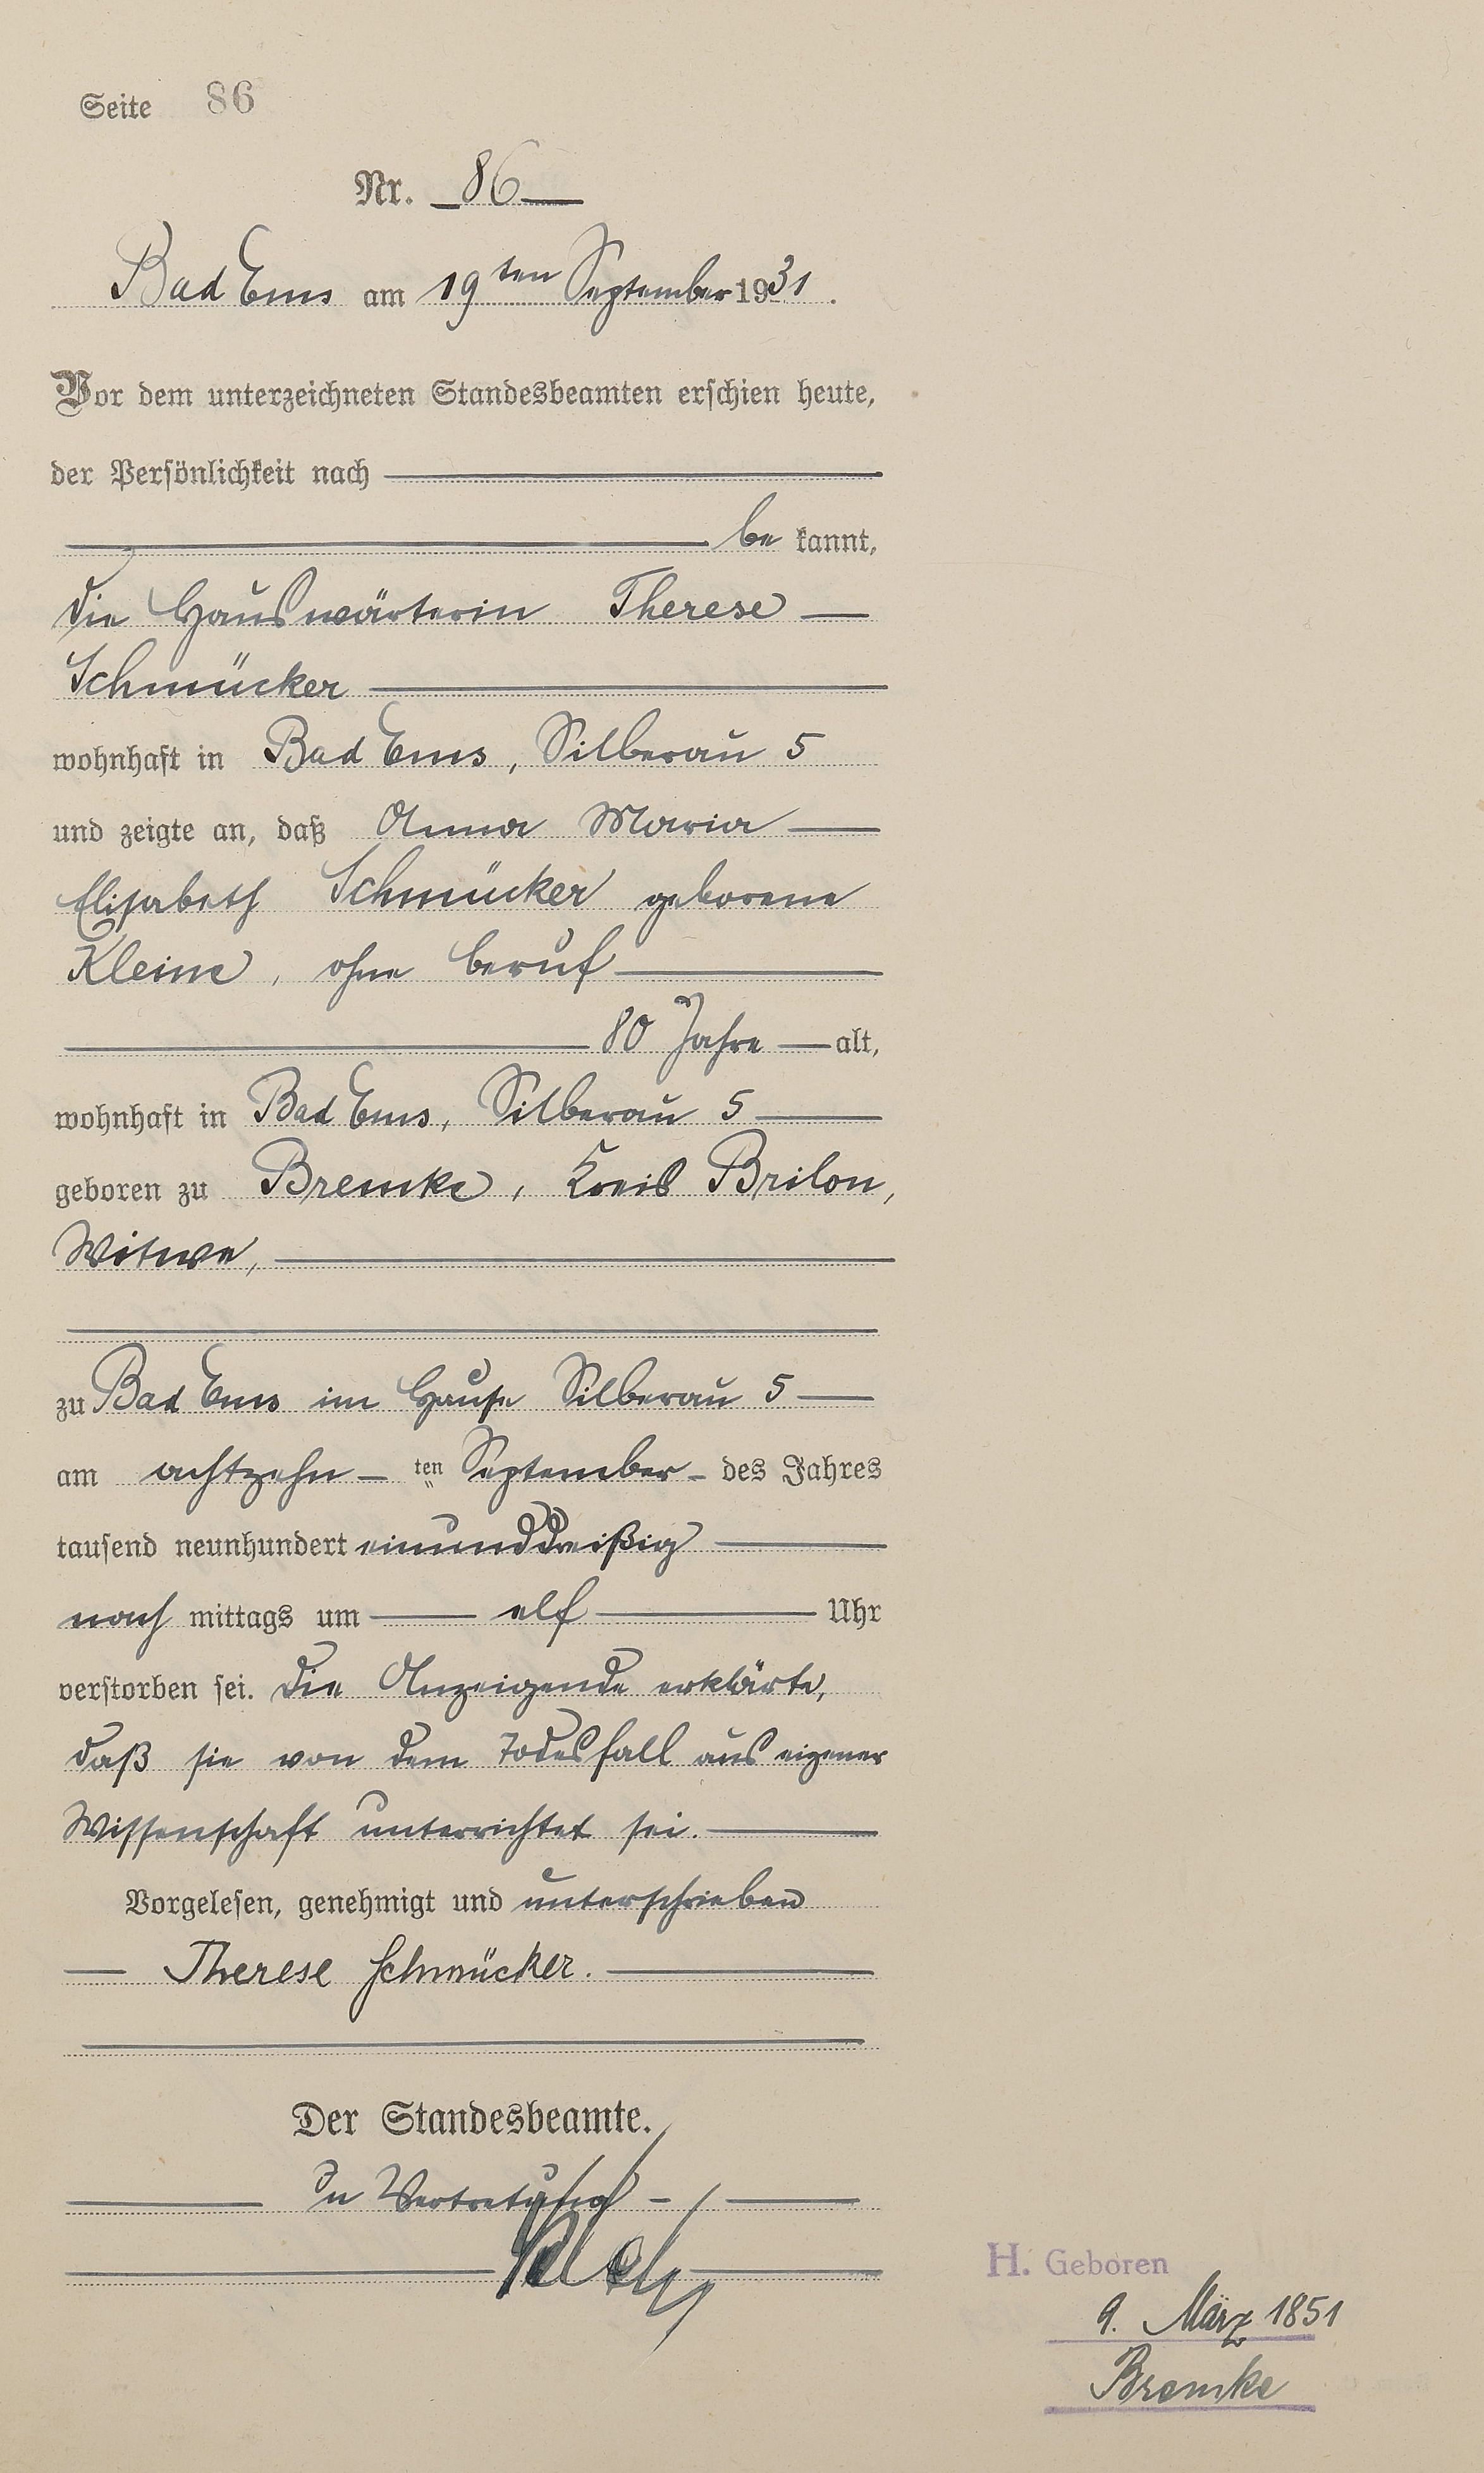 Seite 86
Nr. 86
Bad Ems am 19ten September 1931.
Vor dem unterzeichneten Standesbeamten erschien heute,
der Persönlichkeit nach
be kannt,
die Hauswärterin Therese
Schmücker
wohnhaft in Bad Ems, Silberau 5
und zeigte an, daß Anna Maria
Elisabeth Schmücker geborene
Kleine, ohne Beruf
80 Jahre alt,
wohnhaft in Bad Ems, Silberau 5
geboren zu Bremke, Kreis Brilon,
Witwe,
zu Bad Ems im Hause Silberau 5
am achtzehn ten September des Jahres
tausend neunhundert einunddreißig
nach mittags um elf Uhr
verstorben sei. Die Anzeigende erklärte,
daß sie von dem Todesfall aus eigener
Wissenschaft unterrichtet sei.
Vorgelesen, genehmigt und unterschrieben
Therese Schmücker.
Der Standesbeamte.
In Vertretung
H. Geboren
9. März 1851
Bremke